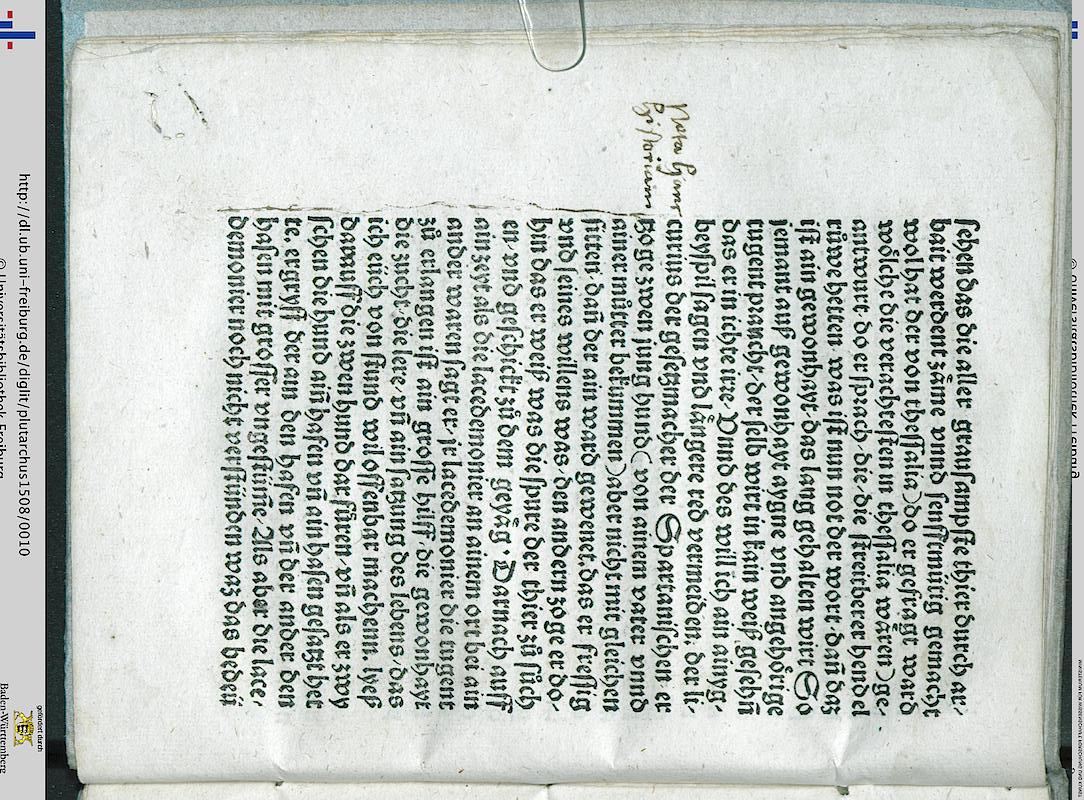 sehen das die aller grausampste thier durch ar⸗
bait werdent zäme vnnd senfftmütig gemacht
wol hat der von thessalia) do er gefragt ward
wölche die verachtesten in thessalia wären) ge⸗
antwurt. do er sprach, die, die streitberer hendel
růwe hetten was ist nun not der wort. dañ das
ist ain gewonhayt das lang gehalten wirt So
jemant auß gewonhayt aygne vnd angehörige
tugent praucht, der selb wirt in kain weiß gesehñ
das er in ichte irre. Vnnd des will ich ain ainig⸗
beyspil sagen vnd lãngere red vermeiden. der li⸗
curius der gesetzmacher der Spartanischen er
zoge zwen jung hund (von ainem vater vnnd
ainer můtter bekummen) aber nicht mit gleichen
sitten. dañ der ain ward gewenet, das er fressig
vnd seines willens was, den andern zoge er do⸗
hin das er weiß was die spüre der thier zů sůch
en, vnd geschickt zů dem geyäg. Darnach auff
ain zeyt als die lacedemonier an ainem ort bei ain
ander waren sagt er, jr lacedemonier die tugent
zů erlangen ist ain grosse hilff die gewonhayt
die zucht, die lere, vñ ain satzung des lebens, das
ich eüch von stund wil offenbar machenn. lyeß
darauff die zwen hund dar füren, vñ als er zwy
schen die hund aiñ hafen vñ ain hasen gesatzt het
te, ergryff der ain den hasen vñ der ander den
hafen mit grosser vngestüme, Als aber die lace⸗
demonier noch nicht verstünden was das bedeü
Nota
http://dl.ub.uni-freiburg.de/diglit/plutarchus1508/0010
© Universitätsbibliothek Freiburg
gefördert durch
Baden-Württemberg